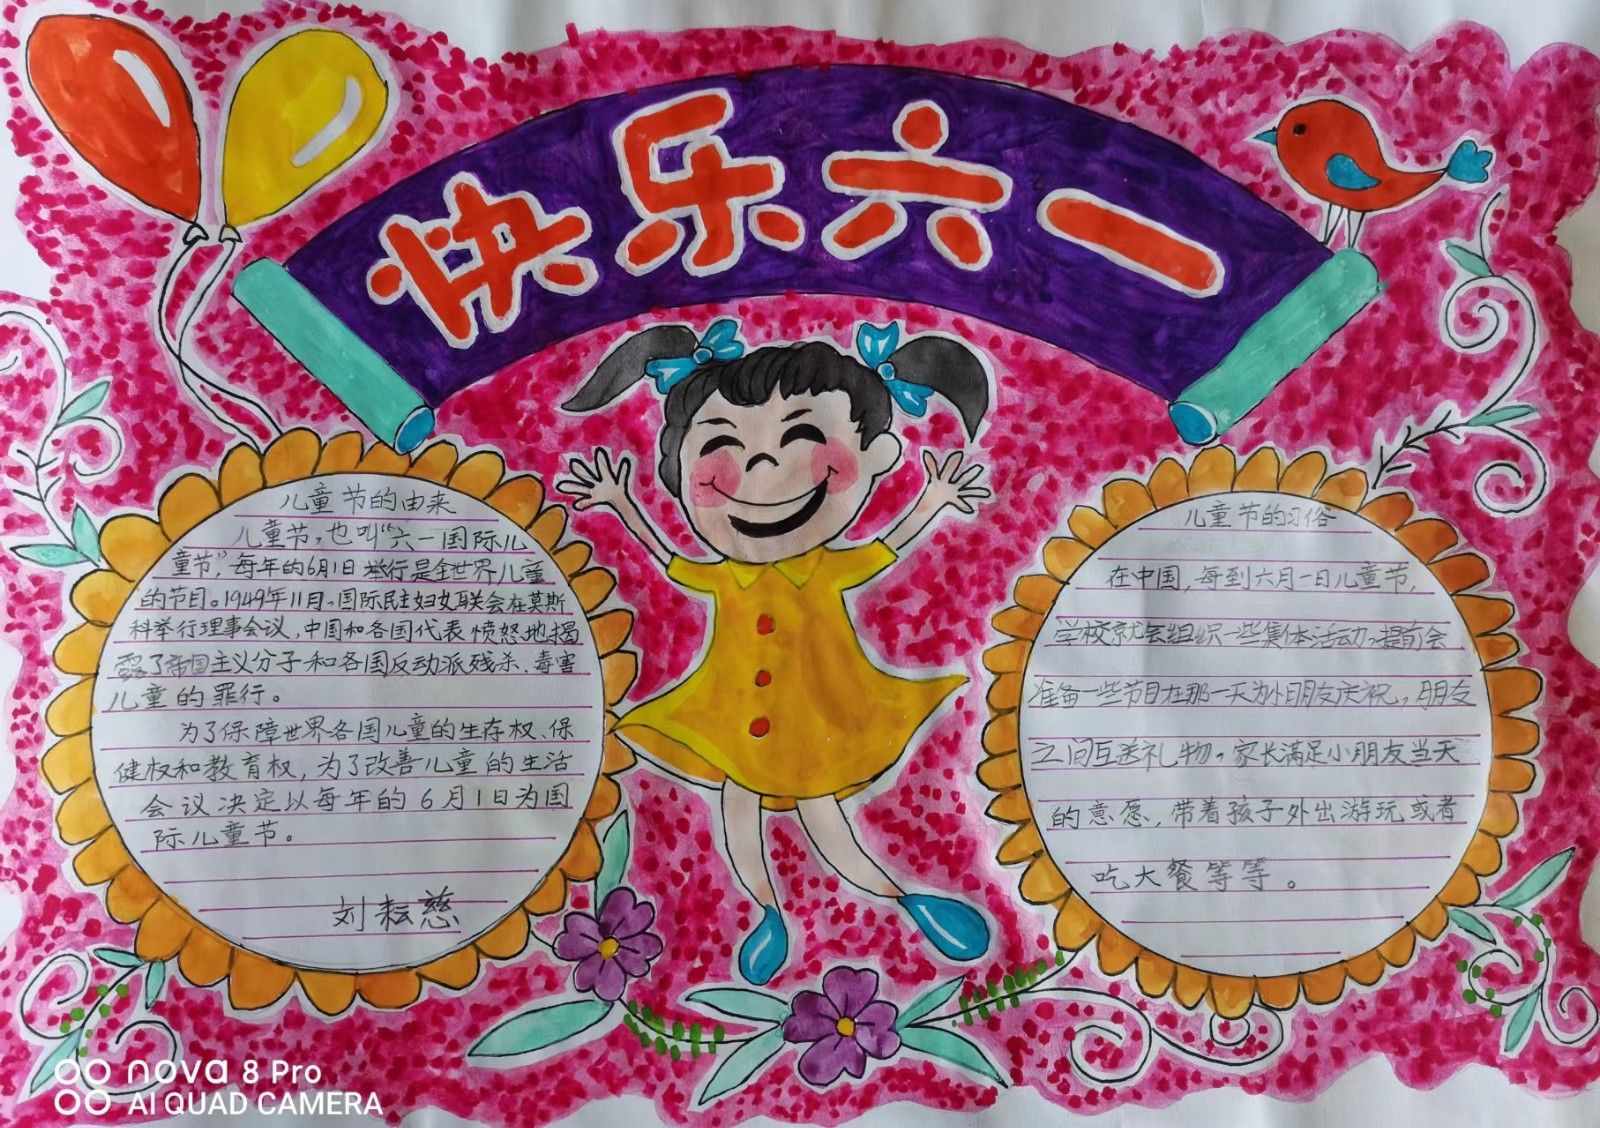 快乐六一
儿童节的由来
儿童节，也叫“六一国际儿
童节”，每年的6月1日举行是全世界儿童
的节目。1949年11月，国际民主妇女联会在莫斯
科举行理事会议，中国和各国代表愤怒地揭
露了帝国主义分子和各国反动派残杀、毒害
儿童的罪行。
为了保障世界各国儿童的生存权、保
健权和教育权，为了改善儿童的生活
会议决定以每年的6月1日为国
际儿童节。
刘耘慈
儿童节的习俗
在中国，每到六月一日儿童节，
学校就会组织一些集体活动，提前会
准备一些节目在那一天为小朋友庆祝，朋友
之间互送礼物，家长满足小朋友当天
的意愿，带着孩子外出游玩或者
吃大餐等等。
nova 8 Pro
AI QUAD CAMERA